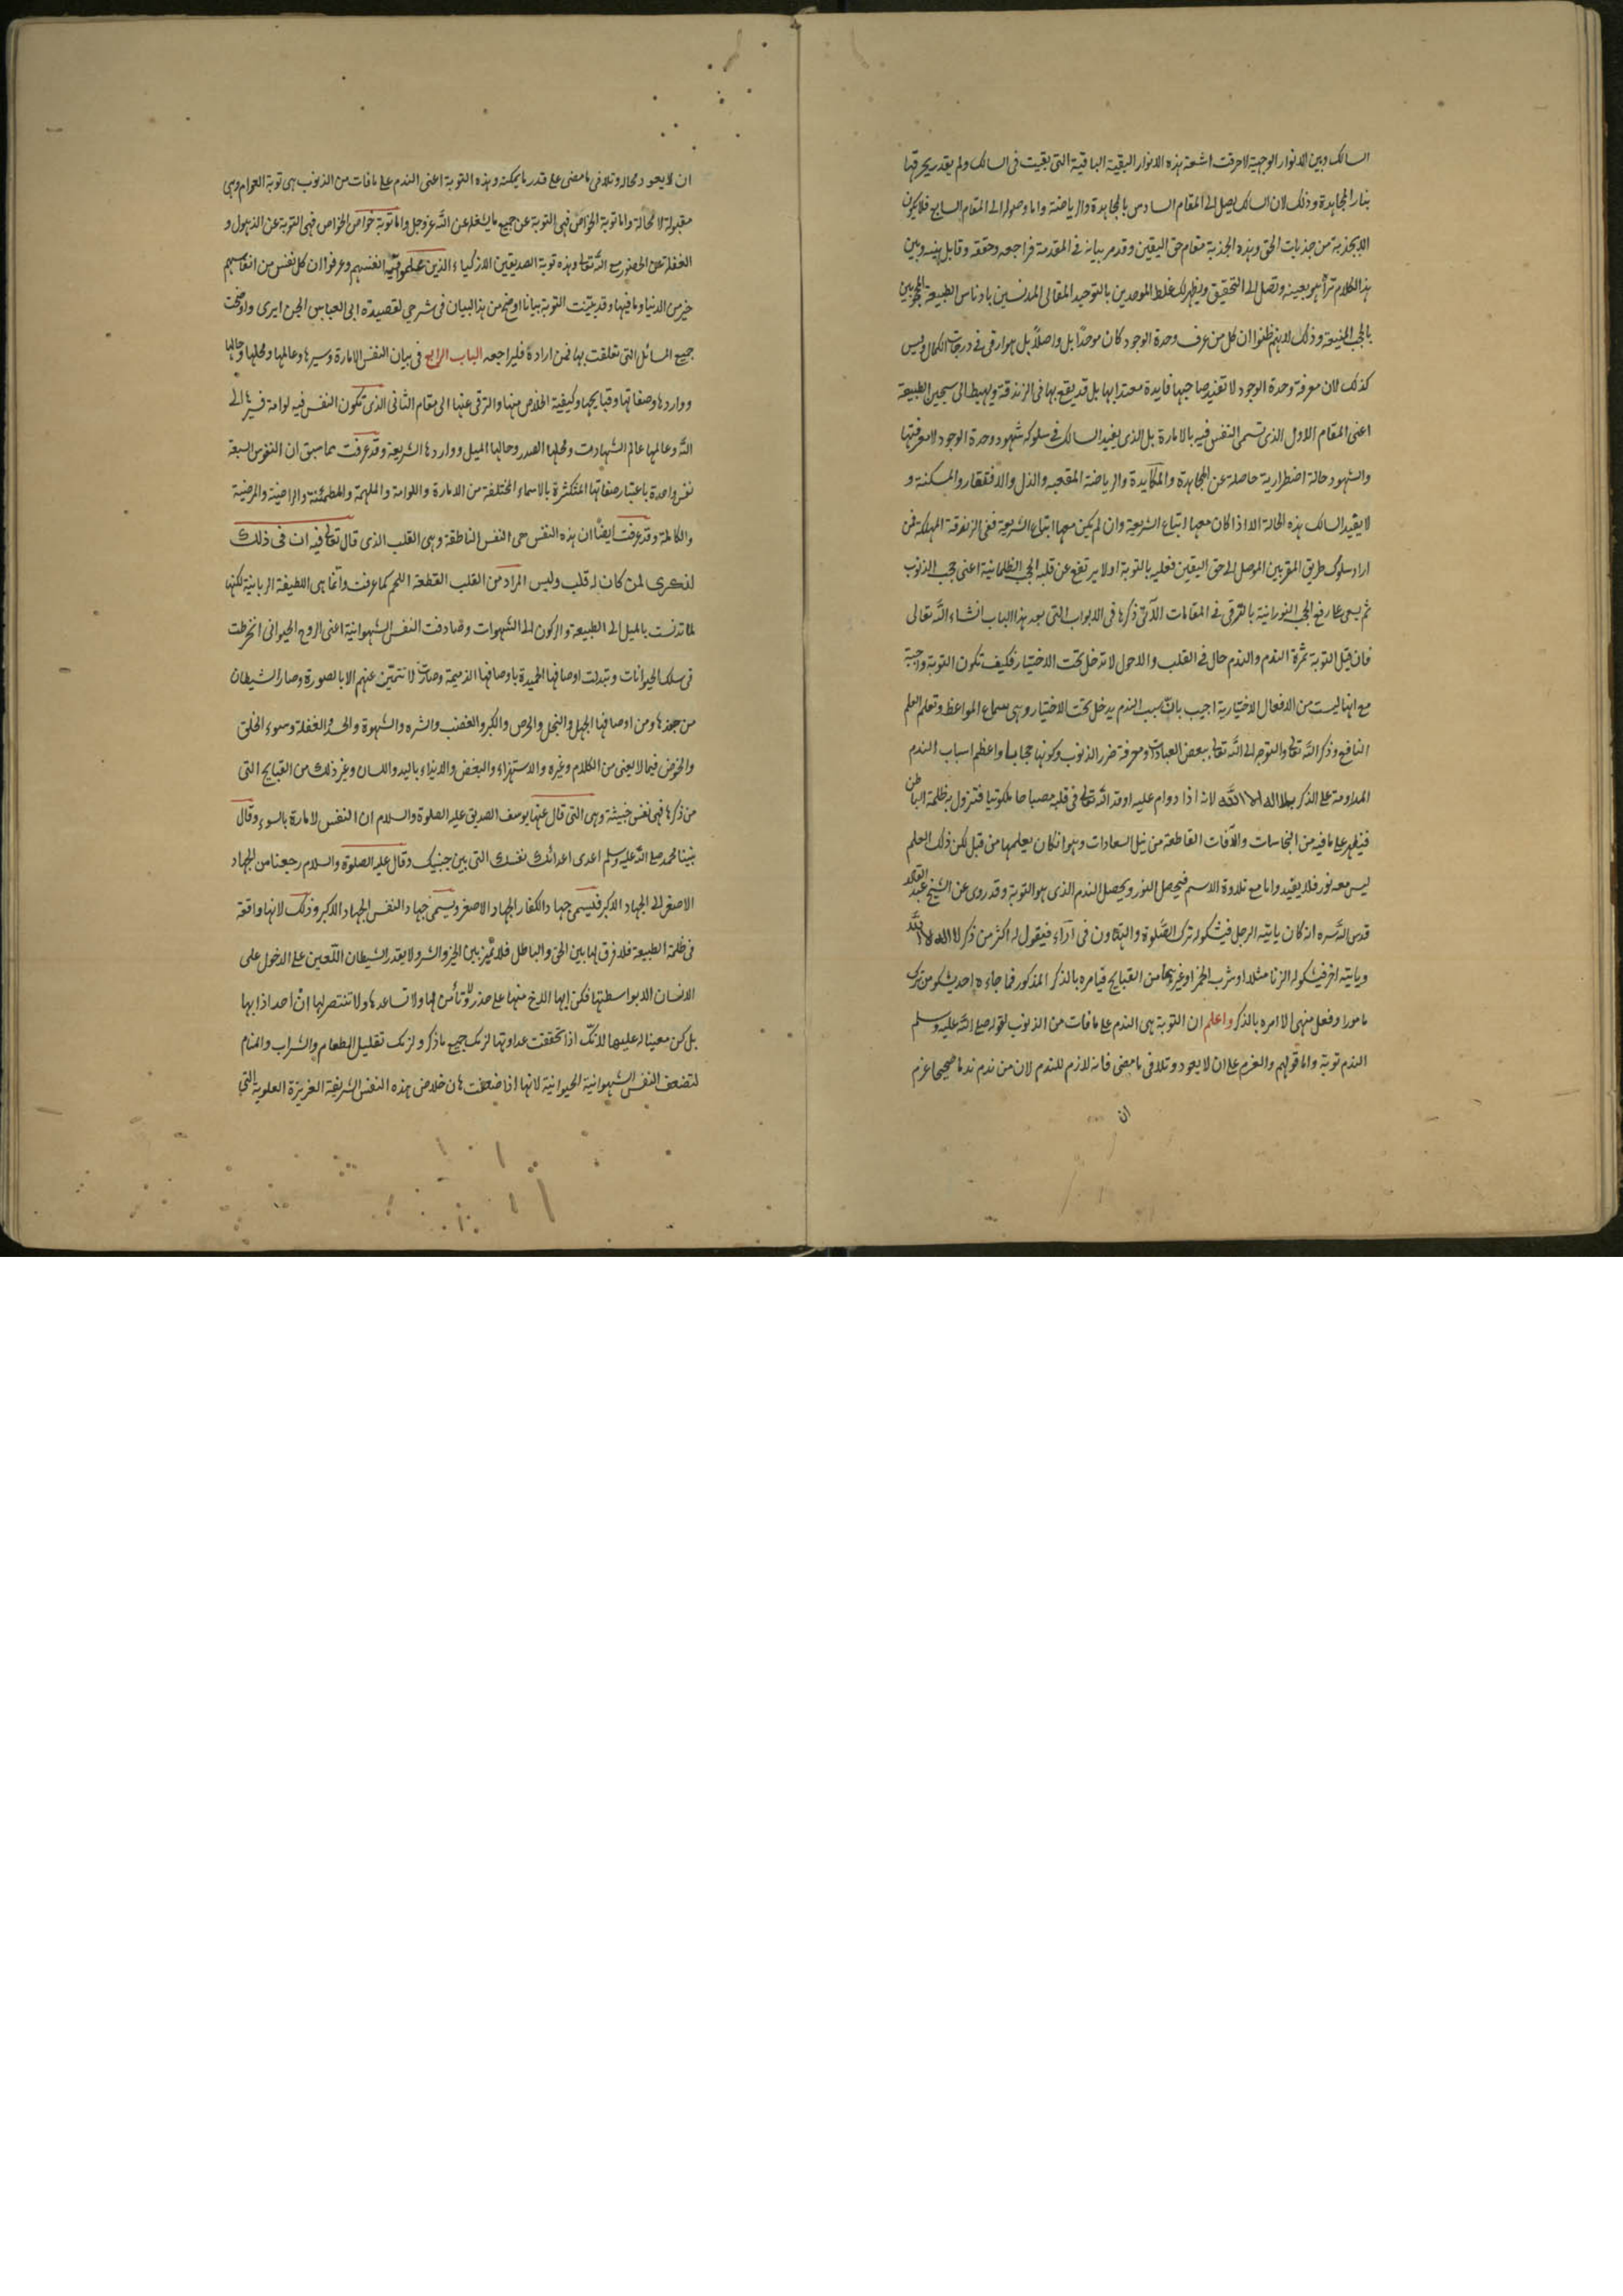 السالك وبين الانوار الوجهية لاحرقت اشعة هذه الانوار البقية الباقية التى بقيت فى السالك ولم يقدر يحرقها
بنار المجاهدة وذلك لان السالك يصل الى المقام السادس بالمجاهدة والرياضة واما وصوله الى المقام السابع فلا يكون
الا بجذبة من جذبات الحق وهذه الجذبة مقام حق اليقين وقد مر بيانه فى المقدمة فراجعه وحققه وقابل بينه وبين
هذا الكلام تراه هو بعينه وتصل الى التحقيق ويظهر لك غلط الموحدين بالتوحيد المقالى المدنسين بادناس الطبيعة المحجوبين
بالحجب المنيعة وذلك لانهم ظنوا ان كل من عرف وحدة الوجود كان موحدًا بل واصلاً بل هو ارقى فى درجات الكمال وليس
كذلك لان معرفة وحدة الوجود لا تفيد صاحبها فايدة معتدا بها بل قد يقع بها فى الزندقة ويهبط الى سجين الطبيعة
اعنى المقام الاول الذى تسمى النفس فيه بالامارة بل الذى يفيد السالك فى سلوكه شهود وحدة الوجود لا معرفتها
والشهود حالة اضطرارية حاصلة عن المجاهدة والمكايدة والرياضة المقعبه والذل والافتقار والمسكنة و
لا يفيد السالك هذه الحالة الا اذا كان معها اتباع الشريعة وان لم يكن معها اتباع الشريعة ففى الزندقة المهلكة فمن
اراد سلوك طريق المقربين الموصل الى حق اليقين فعليه بالتوبة اولا يرتفع عن قلبه الحجب الظلمانية اعنى حجب الذنوب
ثم يسعى على رفع الحجب النورانية بالترقى فى المقامات الآتى ذكرها فى الابواب التى بعد هذا الباب انشاء الله تعالى
فان قيل التوبة ثمرة الندم والندم حال فى القلب والاحوال لا تدخل تحت الاختيار فكيف تكون التوبة واجبة
مع انها ليست من الافعال الاختيارية اجيب بان سبب الندم يدخل تحت الاختيار وهى سماع المواعظ وتعلم العلم
النافع وذكر الله تعالى والتوجه الى الله تعالى ببعض العبادات ومعرفة ضرر الذنوب وكونها حجابا واعظم اسباب الندم
المداومة على الذكر بلا اله الا الله لانه اذا دوام عليه اوقد الله تعالى فى قلبه مصباحا ملكوتيا فتزول به ظلمة الباطن
فيظهر على ما فيه من النجاسات والآفات القاطعة من نيل السعادات وهو انكان يعلمها من قبل لكن ذلك العلم
ليس معه نور فلا يفيد واما مع تلاوة الاسم فيحصل النور ويحصل الندم الذى هو التوبة وقد روى عن الشيخ عبد القادر
قدس الله سره انه كان ياتيه الرجل فيشكو له ترك الصلوة والتهاون فى اداء فيقول له اكثر من ذكر لا اله الا الله
وياتيه اخر فيشكو له الزنا مثلا او شرب الخمر او غيرهما من القبايح فيامره بالذكر المذكور فما جاءه احد يشكو من ترك
مامور او فعل منهى الا امره بالذكر واعلم ان التوبة هى الندم على ما فات من الذنوب لقوله صلى الله عليه وسلم
الندم توبة واما قولهم والعزم على ان لا يعود وتلافى ما مضى فانه لازم للندم لان من ندم ندما صحيحا عزم
ان
ان لا يعود محاله وتلافى ما مضى على قدر ما يمكنه وهذه التوبة اعنى الندم على ما فات من الذنوب هى توبة العوام وهى
مقبولة لا محالة واما توبة الخواص فهى التوبة عن جميع ما يشغل عن الله عز وجل واما توبة خواص الخواص فهى التوبة عن الذهول و
الغفلة عن الحضور مع الله تعالى وهذه توبة الصديقين الازكياء الذين عملوا قيمة انفسهم وعرفوا ان كل نفس من انفاسهم
خير من الدنيا وما فيها وقد بينت التوبة بيانا اوضح من هذا البيان فى شرحى لقصيدة ابى العباس الجزايرى واوضحت
جميع المسائل التى تعلقت بها فمن اراده فليراجعه الباب الرابع فى بيان النفس الامارة وسيرها وعالمها ومحلها وحالها
وواردها وصفاتها وقبايحها وكيفية الخلاص منها والترقى عنها الى مقام الثانى الذى تكون النفس فيه لوامة فسيرها الى
الله وعالمها عالم الشهادت ومحلها الصدر وحالها الميل وواردها الشريعة وقد عرفت مما سبق ان النفوس السبعة
نفس واحدة باعتبار صفاتها المتكثرة بالاسماء المختلفة من الامارة واللوامة والملهمة والمطمئنة والراضية والمرضية
والكاملة وقد عرفت ايضًا ان هذه النفس هى النفس الناطقة وهى القلب الذى قال تعالى فيه ان فى ذلك
لذكرى لمن كان له قلب وليس المراد من القلب القطعة اللحم كما عرفت وانما هى اللطيفة الربانية لكنها
لما تدنست بالميل الى الطبيعة والركون الى الشهوات وصادفت النفس الشهوانية اعنى الروح الحيوانى انخرطت
فى سلك الحيوانات وتبدلت اوصافها الحميدة باوصافها الذميمة وصارت لا تتميز عنهم الا بالصورة وصار الشيطان
من جندها ومن اوصافها الجهل والبخل والحرص والكبر والغضب والشره والشهوة والحسد والغفلة وسوء الخلق
والخوض فيما لا يعنى من الكلام وغيره والاستهزاء والبغض والايذاء باليد واللسان وغير ذلك من القبايح التى
من ذكرها فهى نفس خبيثة وهى التى قال عنها يوسف الصديق عليه الصلوة والسلام ان النفس لامارة بالسوء وقال
نبينا محمد صلى الله عليه وسلم اعدى اعدائك نفسك التى بين جنبيك وقال عليه الصلوة والسلام رجعنا من الجهاد
الاصغر الى الجهاد الاكبر فسمى جهاد الكفار الجهاد الاصغر وسمى جهاد النفس الجهاد الاكبر وذلك لانها واقعة
فى ظلمة الطبيعة فلا فرق لها بين الحق والباطل فلا تميز بين الخير والشر ولا يقدر الشيطان اللعين على الدخول على
الانسان الا بواسطتها فكن ايها الاخ منها على حذر ولا تأمن لها ولا تساعدها ولا تنتصر لها ان احد اذا بها
بل كن معينا له عليها لانك اذا تحققت عداوتها لزمك جميع ما ذكر ولزمك تقليل الطعام والشراب والمنام
لتضعف النفس الشهوانية الحيوانية لانها اذا ضعفت هان خلاص هذه النفس الشريفة العزيزة العلوية التى